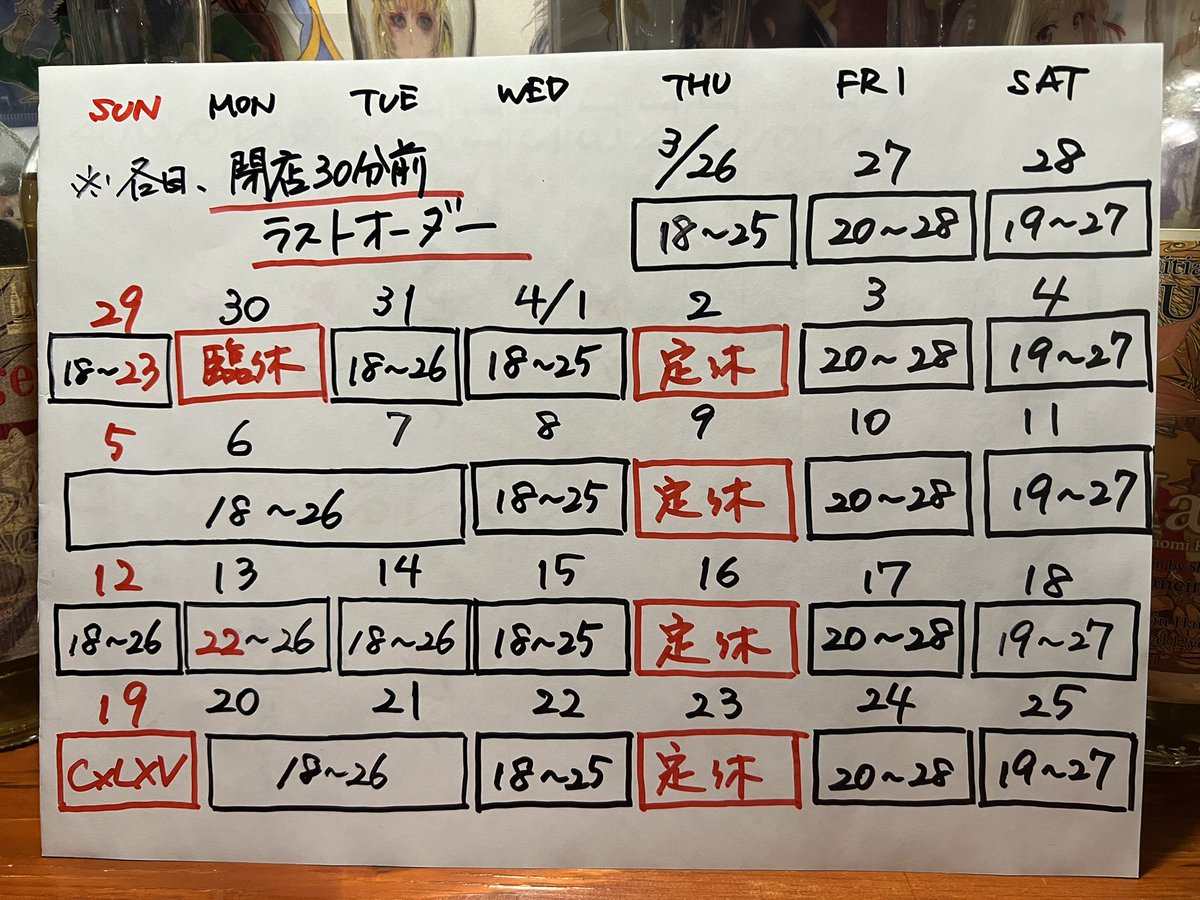 SUN MON TUE WED THU FRI SAT
※各日、閉店30分前
ラストオーダー
3/26 27 28
18~25 20~28 19~27
29 30 31 4/1 2 3 4
18~23 臨休 18~26 18~25 定休 20~28 19~27
5 6 7 8 9 10 11
18~26 18~25 定休 20~28 19~27
12 13 14 15 16 17 18
18~26 22~26 18~26 18~25 定休 20~28 19~27
19 20 21 22 23 24 25
CxLxV 18~26 18~25 定休 20~28 19~27